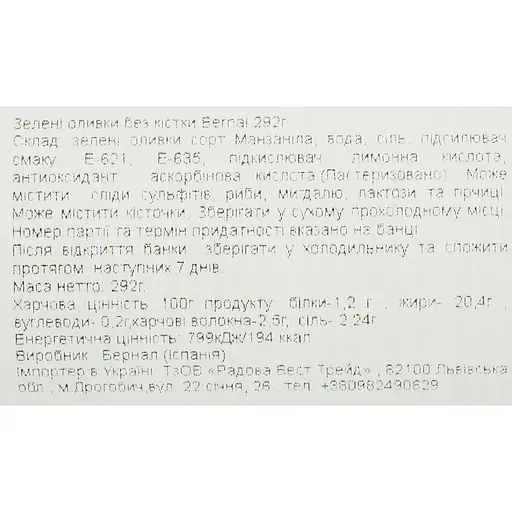 Зелені оливки без кістки Bernal 292г
Склад: зелені оливки сорт Манзаніла, вода, сіль, підсилювач
смаку Е-621, Е-635, підкислювач лимонна кислота,
антиоксидант аскорбінова кислота.(Пастеризовано). Може
містити сліди сульфітів, риби, мигдалю, лактози та гірчиці.
Може містити кісточки. Зберігати у сухому прохолодному місці.
Номер партії та термін придатності вказано на банці.
Після відкриття банки зберігати у холодильнику та спожити
протягом наступних 7 днів.
Маса нетто: 292г.
Харчова цінність 100г продукту: білки-1,2 г , жири- 20,4г ,
вуглеводи- 0,2г,харчові волокна-2,5г, сіль- 2,24г
Енергетична цінність: 799кДж/194 ккал
Виробник: Бернал (Іспанія)
Імпортер в Україні: ТзОВ «Радова Вест Трейд» , 82100 Львівська
обл., м.Дрогобич,вул. 22 січня, 26 , тел. +380982490629